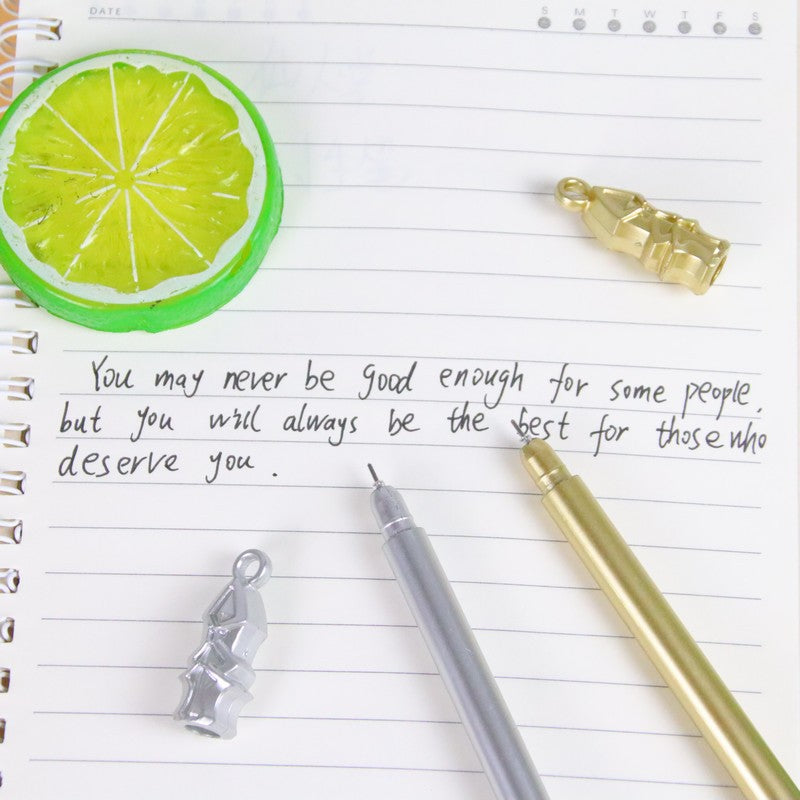 DATE S M T W T F S
You may never be good enough for some people,
but you will always be the best for those who
deserve you.